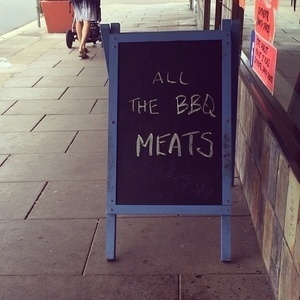 ALL
THE BBQ
MEATS